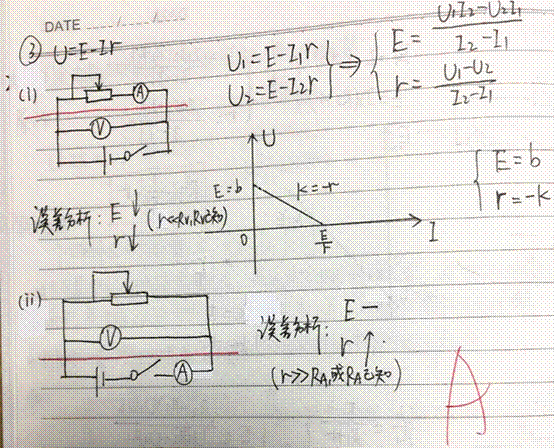 DATE
③ U=E-Ir
U₁=E-I₁r
U₂=E-I₂r
⇒
E=(U₁I₂-U₂I₁)/(I₂-I₁)
r=(U₁-U₂)/(I₂-I₁)
(i)
A
V
U
E=b
k=-r
0
E/r
I
E=b
r=-k
误差分析: E↓
r↓
(r<<Rv,Rv已知)
(ii)
V
A
误差分析: E—
r↑
(r>>RA,或RA已知)
A